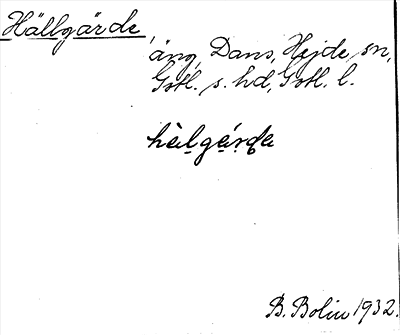 Hällgärde,
äng, Dans, Hejde sn,
Gotl. s. hd, Gotl. l.
hàlgárda
B. Bolin 1932.